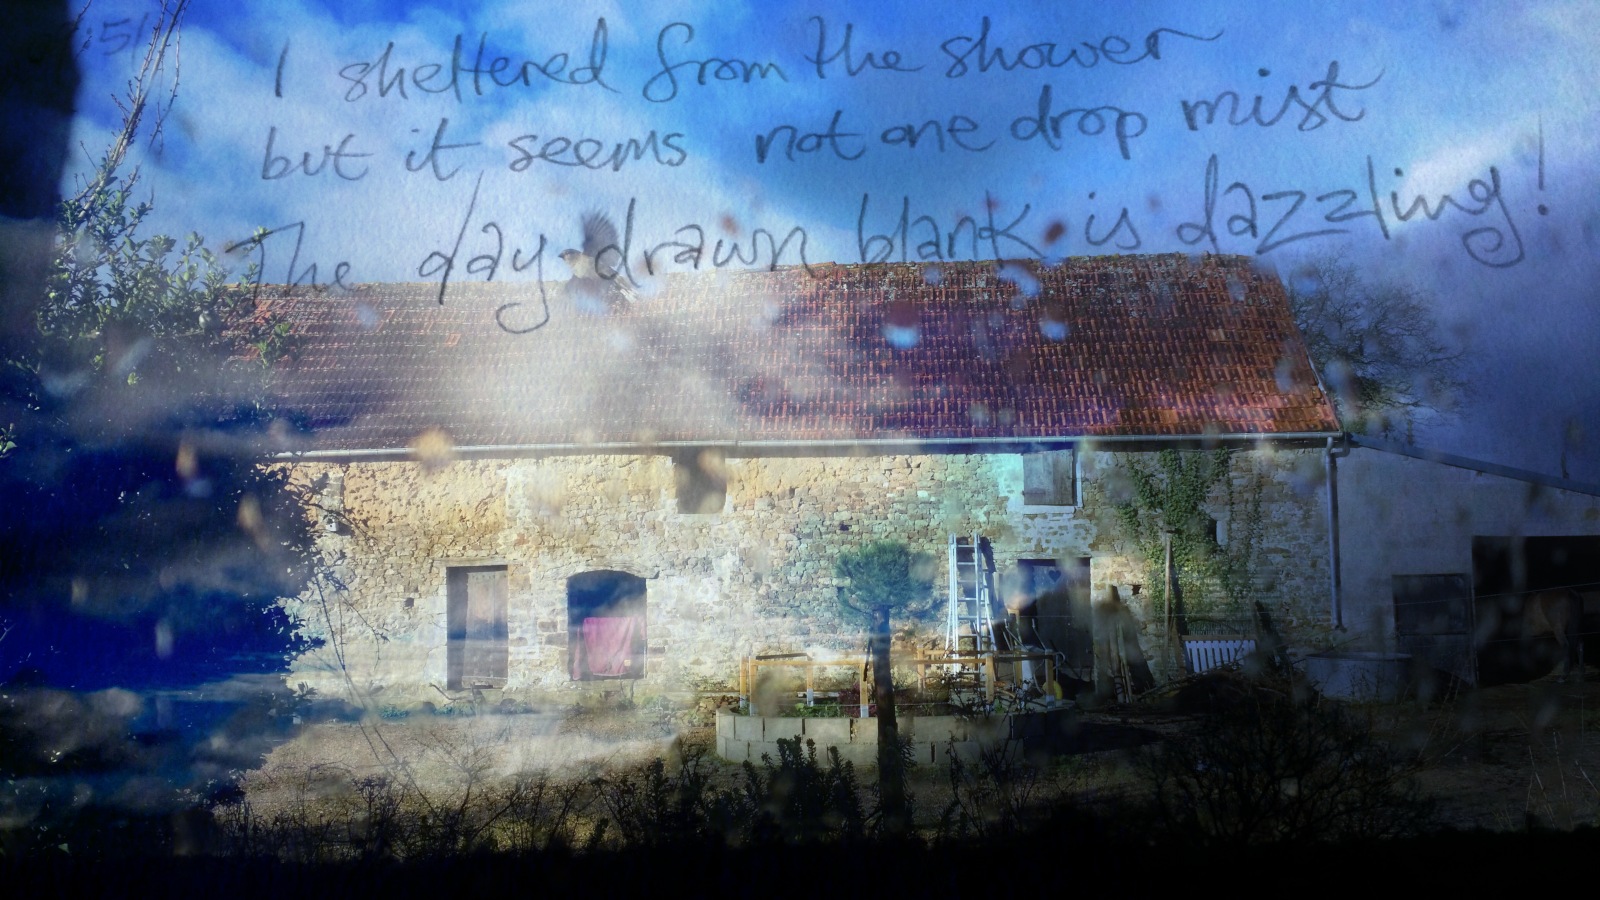 I sheltered from the shower
but it seems not one drop mist
The day drawn blank is dazzling!